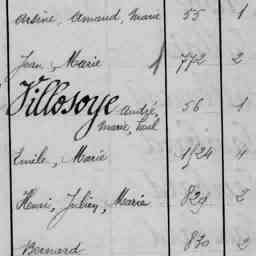 Arsène, Armand, Marie 55 1
Jean, Marie 1772 2
Villosoye André, 56 1
Marie, Paul
Emile, Marie 1524 4
Henri, Julien, Marie 829 2
Bernard 830 2